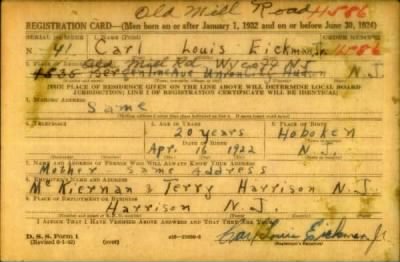 Old Mill Road
REGISTRATION CARD—(Men born on or after January 1, 1922 and on or before June 30, 1924)
SERIAL NUMBER 1. NAME (Print) ORDER NUMBER
N 41 Carl Louis Eickman Jr. 11586
Old Mill Rd, Wycoff NJ
4535 Bergenline Ave Union City Hudson N.J.
[THE PLACE OF RESIDENCE GIVEN ON THE LINE ABOVE WILL DETERMINE LOCAL BOARD
JURISDICTION; LINE 2 OF REGISTRATION CERTIFICATE WILL BE IDENTICAL]
3. MAILING ADDRESS
Same
4. TELEPHONE 5. AGE IN YEARS 6. PLACE OF BIRTH
20 years Hoboken
DATE OF BIRTH
Apr. 16 1922 N.J.
7. NAME AND ADDRESS OF PERSON WHO WILL ALWAYS KNOW YOUR ADDRESS
Mother Same Address
8. EMPLOYER'S NAME AND ADDRESS
McKiernan & Terry Harrison N.J.
9. PLACE OF EMPLOYMENT OR BUSINESS
Harrison N.J.
I AFFIRM THAT I HAVE VERIFIED ABOVE ANSWERS AND THAT THEY ARE TRUE.
D. S. S. Form 1
(Revised 6-1-42) (over)
Carl Louis Eickman Jr.